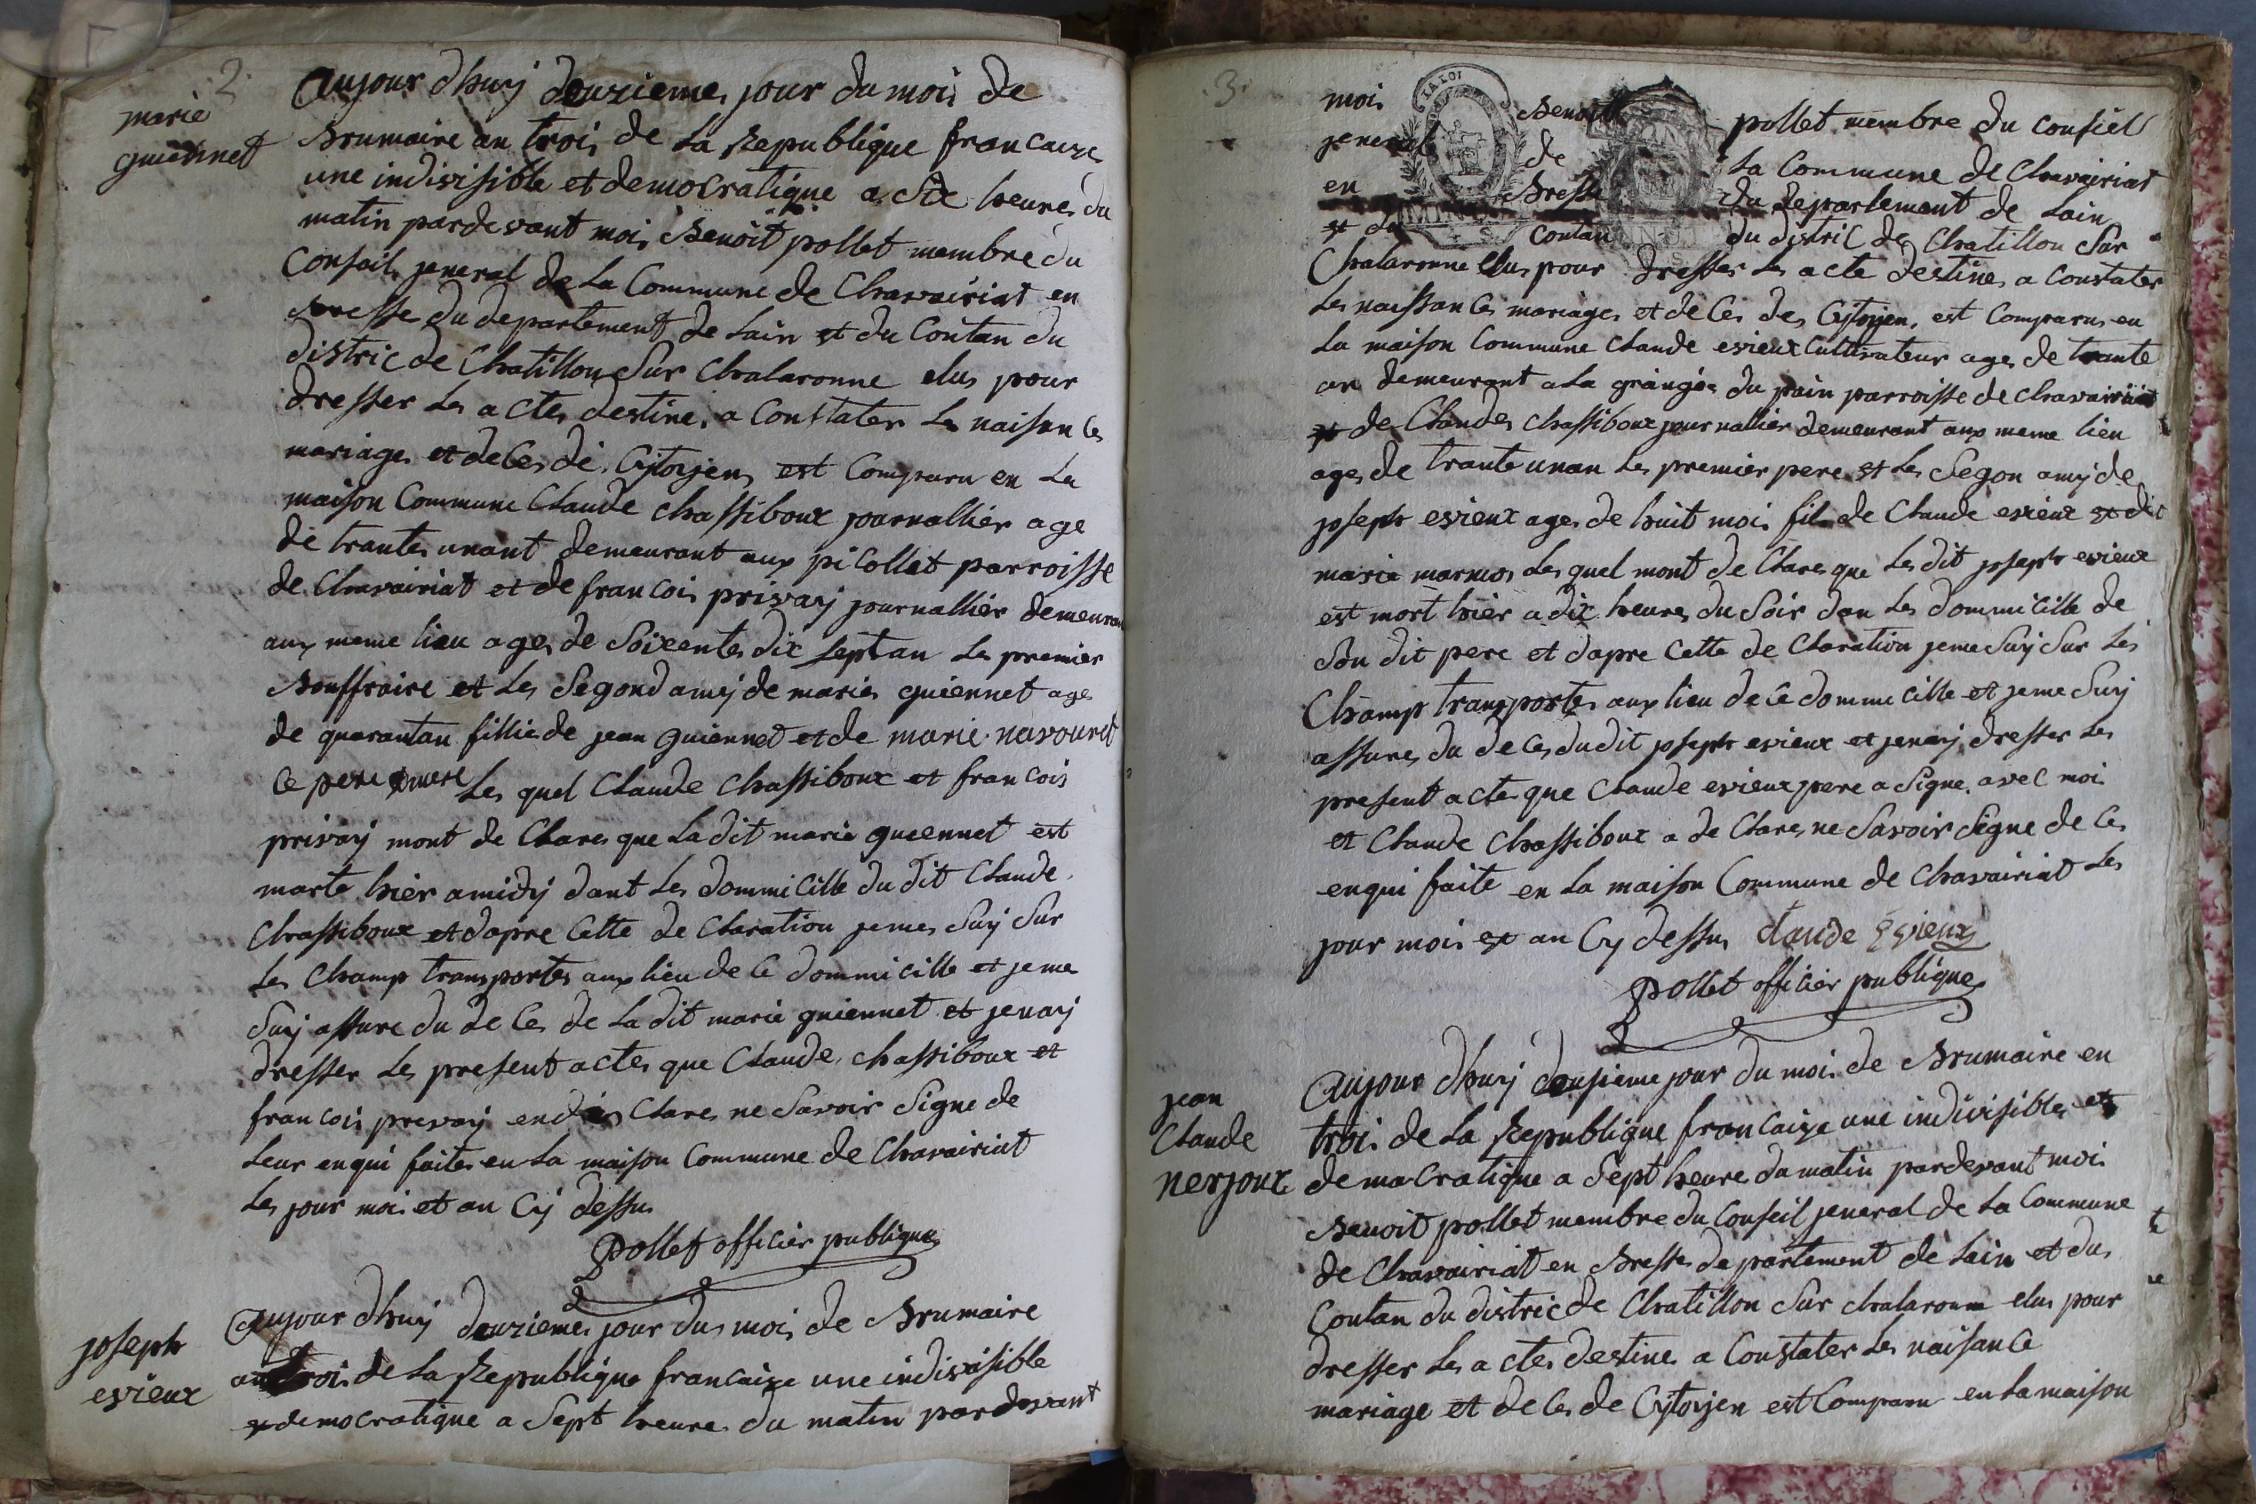 2.
marie
guiennet
aujour dhuy deuzieme jour du mois de
Brumaire an trois de la Republique francaize
une indivisible et democratique a six heures du
matin pardevant mois Benoit pollet membre du
Conseil jeneral de la Commune de Chavairiat en
Bresse du departement de Lain et du Contan du
distric de Chatillon Sur Chalaronne elus pour
dresser les actes destine a Constater les naisances
mariages et deces des Cytoyens est Comparu en la
maison Commune Claude chassiboux journallier age
de trantes unant demeurant aux picollet parroisse
de Chavairiat et de francois privay journallier demeurant
aux meme lieu ages de Soixantes dix Sept an les premier
Bouffraire et les Segond amy de maries guiennet age
de quarantan fillie de jean guiennet et de marie navouret
Ce pere mere Les quel Claude Chassiboux et francois
privay mont de Clares que Ladit marie guiennet est
morte hier amidy dant les dommicille du dit Claude
Chassiboux et dapre Cette de Claration jemes Suy Sur
Les Champ transportes aux lieu de Ce dommicille et jeme
Suy assure du de Ces de La dit marie guiennet et jenay
dresser Les present actes que Claude chassiboux et
francois prevay en de Clares ne Savoir Signe de
Leur enqui faites en La maison Commune de Chavairiat
Les jour moi et an Cy dessus
Pollet officier publique
joseph
evieux
aujour dhuy deuziemes jour dus mois de Brumaire
an trois de La Republique francaize une indivisible
et democratique a Sept heures du matin pardevant
3.
mois Benoit pollet membre du Consiel
jeneral de la Commune de Chavairiat
en Bresse du departement de Lain
et du Contan du distric de Chatillon Sur
Chalaronne elus pour dresser les acte destines a Constater
Les naissances mariages et de Ces des Cytoyens est Comparus en
La maison Commune Claude evieux Cultivateur ages de trante
an demeurant a La grangés du pain parroisse de chavairiat
et de Claudes chassiboux journallier demeurant aux meme lieu
ages de trante unan Les premier pere et Les Segon amy de
joseph evieux ages de huit mois fils de Claude evieux et de
marie marmos Les quel mont de Clares que Les dit joseph evieux
est mort hier a dix heures du Soir dan Les dommicille de
Son dit pere et dapre Cette de Claration jeme Suy Sur Les
Champ transportes aux lieu de Ce dommicille et jeme Suy
assures du de Ces dudit joseph evieux et jenay dresser Les
present actes que Claude evieux pere a Signe avec moi
et Claude Chassiboux a de Clares ne Savoir Signe de Ces
enqui faite en La maison Commune de Chavairiat Les
jour mois et an Cy dessus Claude Evieux
Pollet officier publique
jean
Claude
nerjoux
aujour dhuy deusieme jour du mois de Brumaire en
trois de La Republique francaize une indivisibles et
democratique a Sept heures du matin pardevant moi
Benoit pollet membre du Conseil jeneral de La Commune
de Chavairiat en Bresse departement de Lain et du
Contan du distric de Chatillon Sur chalaronne elus pour
dresser Les actes destines a Constater Les naisance
mariage et de Ces de Cytoyen est Comparu en La maison